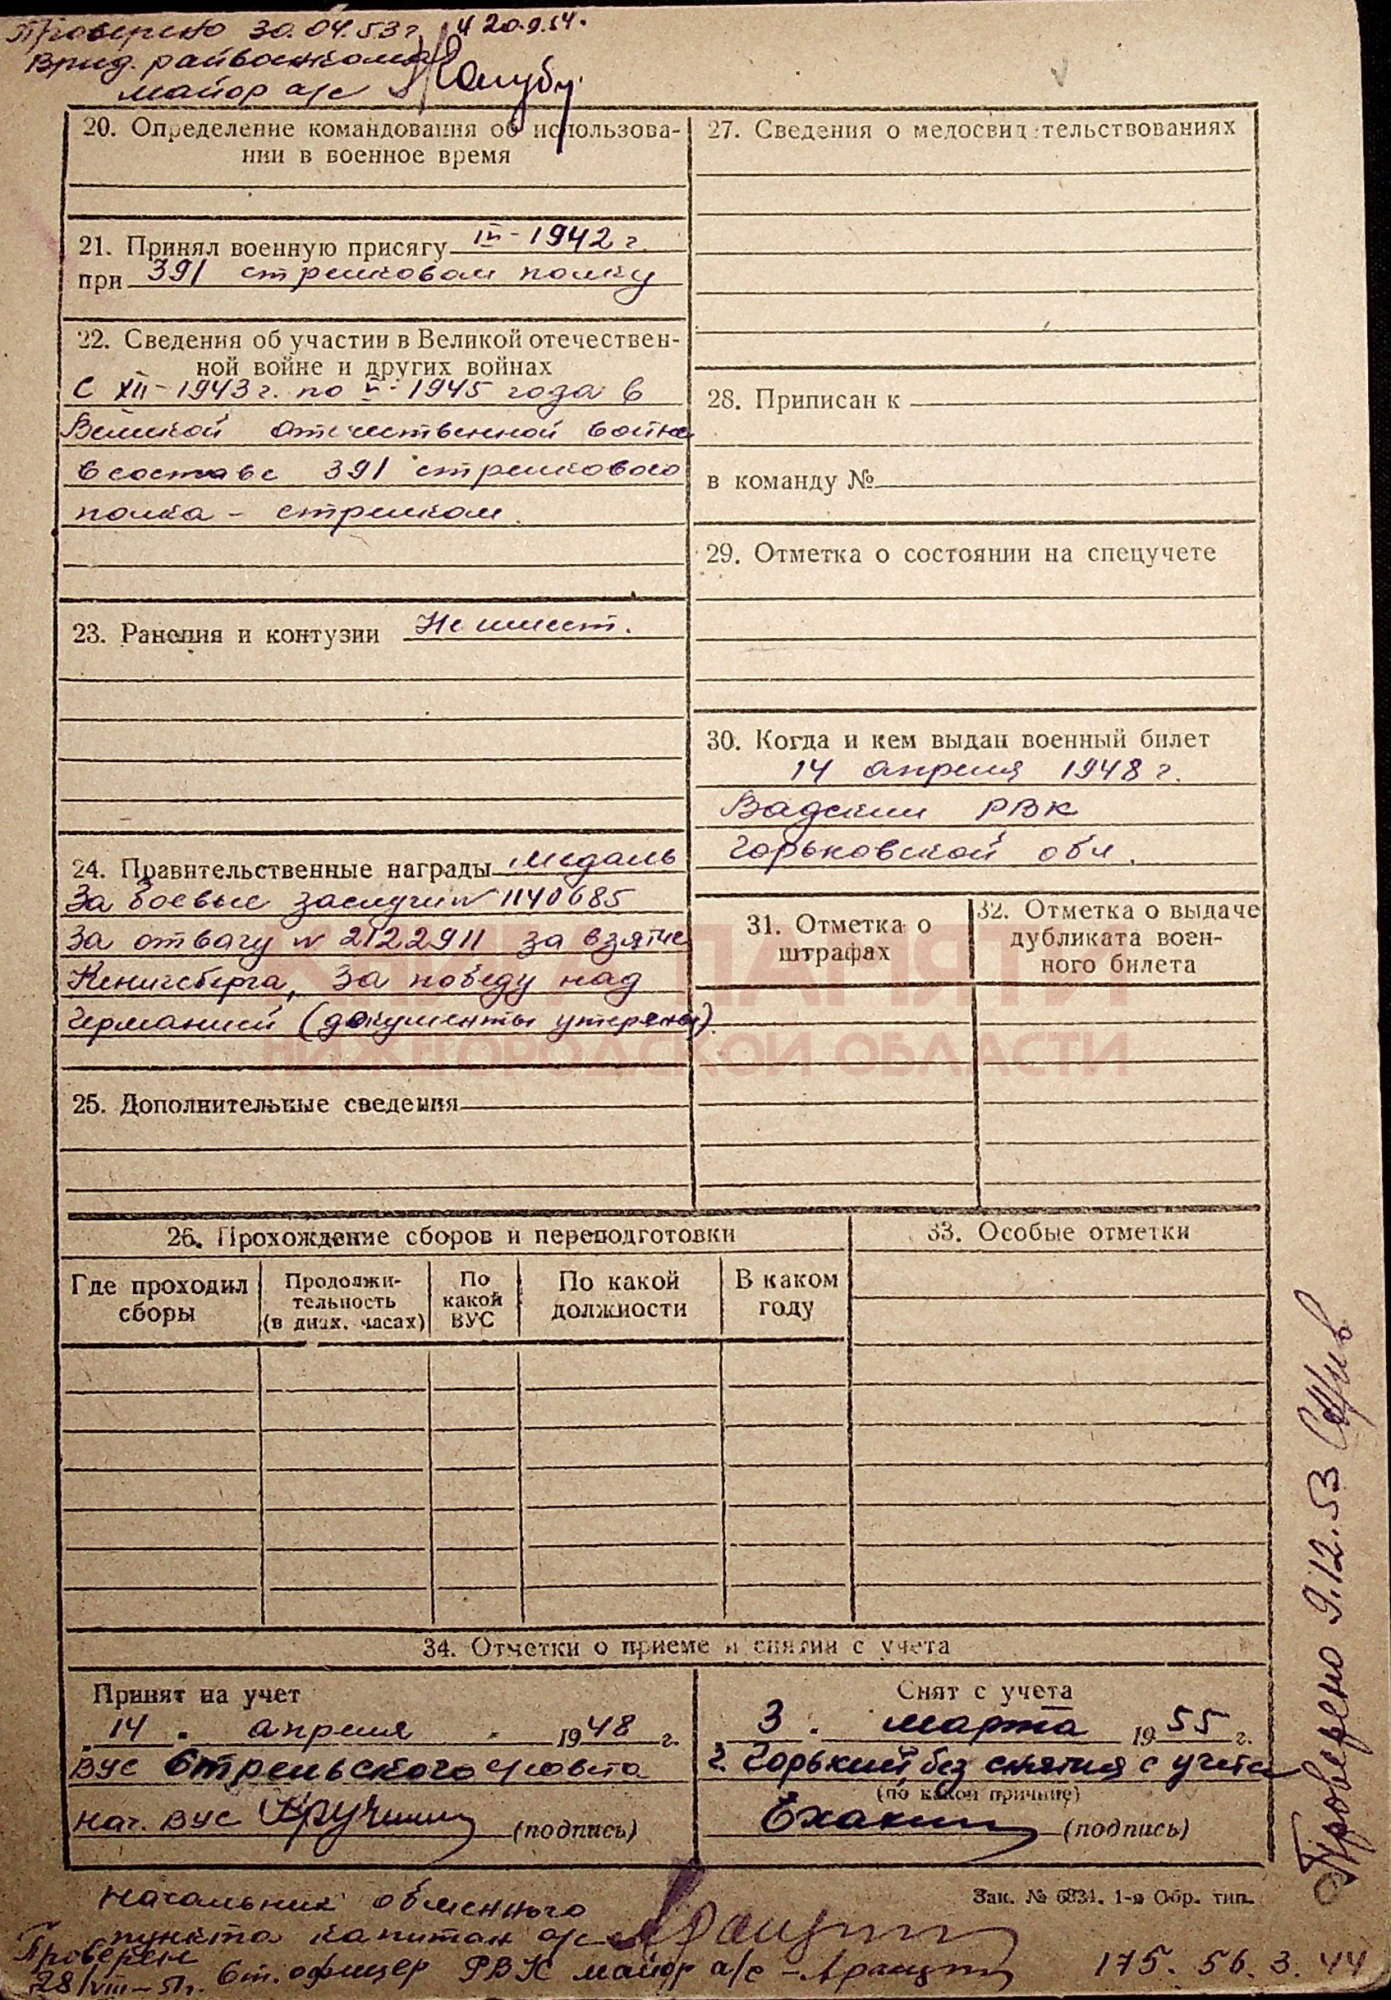 Проверено 30.04.53 г. и 20.9.54.
Врид. райвоенкома
майор а/с
20. Определение командования об использова-
нии в военное время
21. Принял военную присягу III - 1942 г.
при 391 стрелковом полку
22. Сведения об участии в Великой отечествен-
ной войне и других войнах
С XII - 1943 г. по V - 1945 года в
Великой отечественной войне
в составе 391 стрелкового
полка - стрелком.
23. Ранения и контузии Не имеет.
24. Правительственные награды медаль
За боевые заслуги № 1140685
За отвагу № 2122911 за взятие
Кенигсберга, За победу над
Германией (документы утеряны)
25. Дополнительные сведения
27. Сведения о медосвидетельствованиях
28. Приписан к
в команду №
29. Отметка о состоянии на спецучете
30. Когда и кем выдан военный билет
14 апреля 1948 г.
Вадским РВК
Горьковской обл.
31. Отметка о
штрафах
32. Отметка о выдаче
дубликата воен-
ного билета
КНИГА ПАМЯТИ
НИЖЕГОРОДСКОЙ ОБЛАСТИ
26. Прохождение сборов и переподготовки
Где проходил
сборы
Продолжи-
тельность
(в днях, часах)
По
какой
ВУС
По какой
должности
В каком
году
33. Особые отметки
34. Отметки о приеме и снятии с учета
Принят на учет
14 апреля 1948 г.
ВУС Стрельского с/совета
Нач. ВУС (подпись)
Снят с учета
3 марта 1955 г.
г. Горький, без снятия с учета
(по какой причине)
(подпись)
Проверено 9.12.53
Зак. № 6834. 1-я Обр. тип.
Начальник обменного
пункта капитан а/с
Проверен
28/VIII-51г. Ст. офицер РВК майор а/с -
175. 56. 3. 44